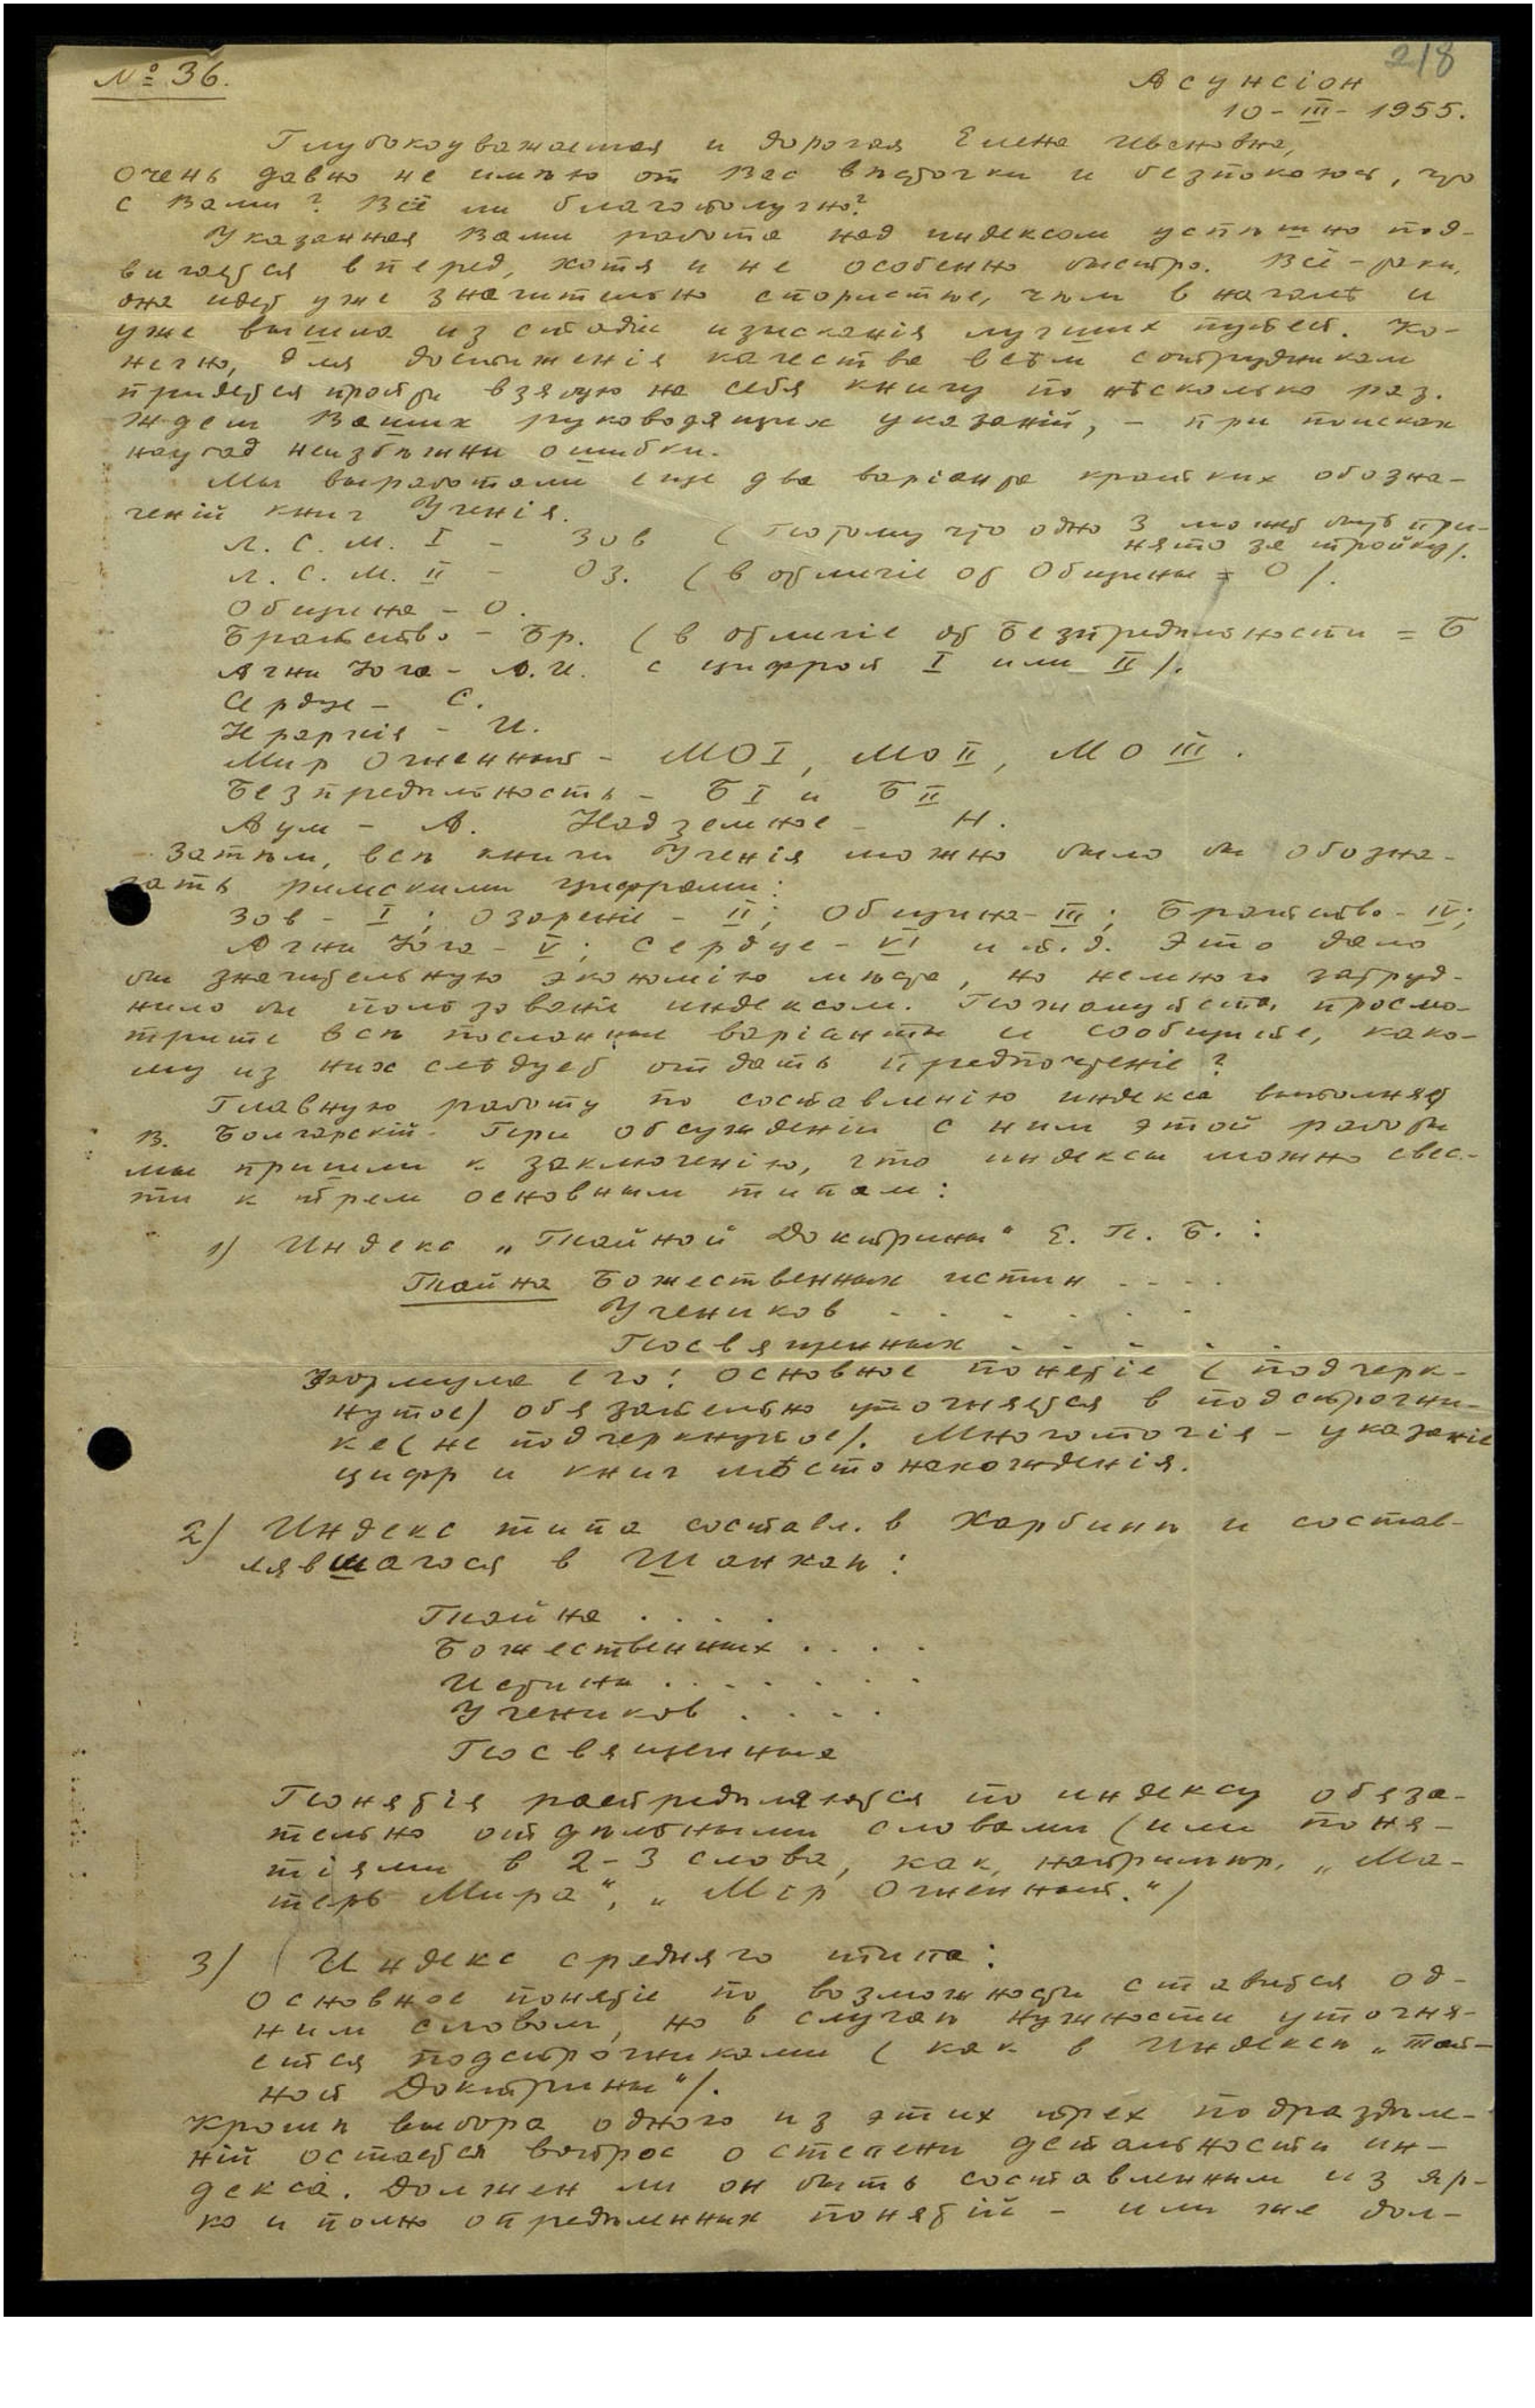 218
№ 36.
Асунсіон
10-III-1955.
Глубокоуважаемая и дорогая Елена Ивановна,
очень давно не имѣю от Вас вѣсточки и безпокоюсь, что
с Вами? Всё ли благополучно?
Указанная Вами работа над индексом успѣшно под-
вигается вперед, хотя и не особенно быстро. Всё-таки,
она идет уже значительно спористѣе, чѣм в началѣ и
уже вышла из стадіи изысканія лучших путей. Ко-
нечно, для достиженія качества всѣм сотрудникам
придется пройти взятую на себя книгу по нѣсколько раз.
Ждем Ваших руководящих указаній, - при поисках
наугад неизбѣжны ошибки.
Мы выработали еще два варіанта кратких обозна-
ченій книг Ученія.
Л. С. М. I - Зов (Потому что одно З может быть при-
нято за тройку).
Л. С. М. II - Оз. (в отличіе от Общины = О).
Община - О.
Братство - Бр. (в отличіе от Безпредѣльности = Б
Агни Йога - А.И. с цифрой I или II).
Сердце - С.
Иерархія - И.
Мир Огненный - МО I, МО II, МО III.
Безпредѣльность - Б I и Б II
Аум - А. Надземное - Н.
Затѣм, всѣ книги Ученія можно было бы обозна-
чать римскими цифрами:
Зов - I; Озареніе - II; Община - III; Братство - IV;
Агни Йога - V; Сердце - VI и т. д. Это дало
бы значительную экономію мѣста, но немного затруд-
нило бы пользованіе индексом. Пожалуйста, просмо-
трите всѣ посланные варіанты и сообщите, како-
му из них слѣдует отдать предпочтеніе?
Главную работу по составленію индекса выполняет
В. Болгарскій. При обсужденіи с ним этой работы
мы пришли к заключенію, что индексы можно свес-
ти к трем основным типам:
1) Индекс „Тайной Доктрины“ Е. П. Б.:
Тайна Божественных истин - - - .
Учеников . . . . . .
Посвященных . . . . . .
Формула его: основное понятіе (подчерк-
нутое) обязательно уточняется в подстрочни-
ке (не подчеркнутое). Многоточія - указаніе
цифр и книг мѣстонахожденія.
2) Индекс типа составл. в Харбинѣ и состав-
лявшагося в Шанхаѣ:
Тайна . . . .
Божественных . . . .
Истины . . . . . . .
Учеников . . . .
Посвященные
Понятія распредѣляются по индексу обяза-
тельно отдѣльными словами (или поня-
тіями в 2-3 слова, как, напримѣр, „Ма-
терь Мира“, „Мір Огненный.“)
3) Индекс средняго типа:
Основное понятіе по возможности ставится од-
ним словом, но в случаѣ нужности уточня-
ется подстрочниками (как в Индексѣ „Тай-
ной Доктрины“).
Кромѣ выбора одного из этих трех подраздѣле-
ній остается вопрос о степени детальности ин-
декса. Должен ли он быть составленным из яр-
ко и полно опредѣленных понятій - или же дол-